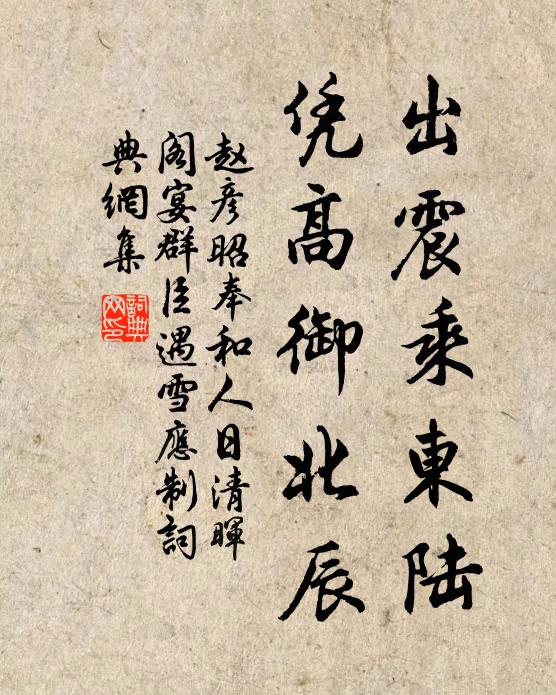 出震乘東陆
凭高御北辰
赵彦昭奉和人日清暉
阁宴群臣遇雪應制詞
典網集
詞典网印